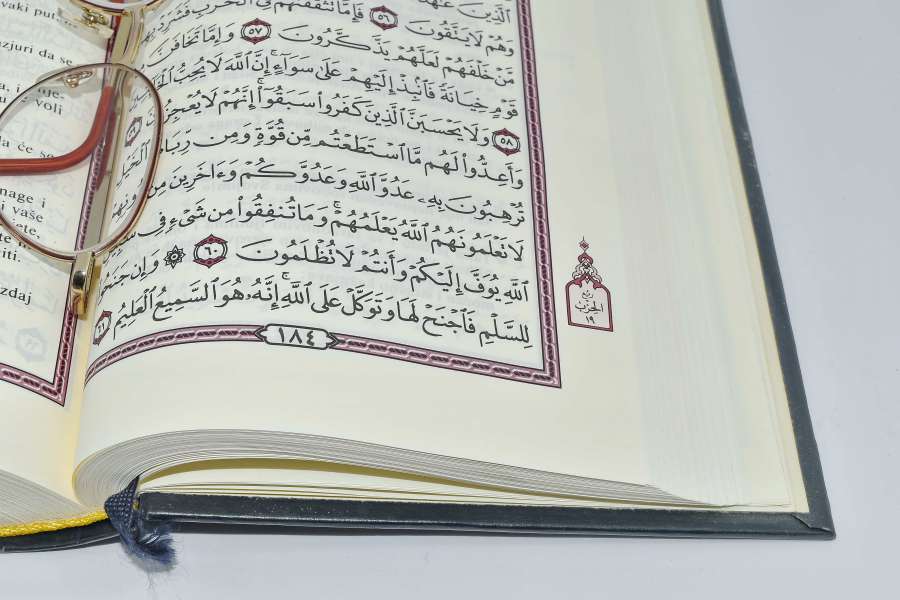 vaki put
azjuri da se
voli
da će se
nage i
i vaše
iti.
zdaj
ٱلَّذِينَ
وَهُمْ لَا يَتَّقُونَ ٥٦ فَإِمَّا تَثْقَفَنَّهُمْ فِى ٱلْحَرْبِ فَشَرِّدْ بِهِم
مَّنْ خَلْفَهُمْ لَعَلَّهُمْ يَذَّكَّرُونَ ٥٧ وَإِمَّا تَخَافَنَّ
قَوْمٍ خِيَانَةً فَٱنۢبِذْ إِلَيْهِمْ عَلَىٰ سَوَآءٍ إِنَّ ٱللَّهَ لَا يُحِبُّ
٥٨ وَلَا يَحْسَبَنَّ ٱلَّذِينَ كَفَرُوا۟ سَبَقُوٓا۟ إِنَّهُمْ لَا يُعْجِزُونَ ٥٩
وَأَعِدُّوا۟ لَهُم مَّا ٱسْتَطَعْتُم مِّن قُوَّةٍ وَمِن رِّبَاطِ ٱلْخَيْلِ
تُرْهِبُونَ بِهِۦ عَدُوَّ ٱللَّهِ وَعَدُوَّكُمْ وَءَاخَرِينَ مِن دُونِهِمْ
لَا تَعْلَمُونَهُمُ ٱللَّهُ يَعْلَمُهُمْ وَمَا تُنفِقُوا۟ مِن شَىْءٍ فِى سَبِيلِ
ٱللَّهِ يُوَفَّ إِلَيْكُمْ وَأَنتُمْ لَا تُظْلَمُونَ ٦٠ ۞ وَإِن جَنَحُوا۟
لِلسَّلْمِ فَٱجْنَحْ لَهَا وَتَوَكَّلْ عَلَى ٱللَّهِ إِنَّهُۥ هُوَ ٱلسَّمِيعُ ٱلْعَلِيمُ ٦١
١٨٤
ربع
الحزب
١٩